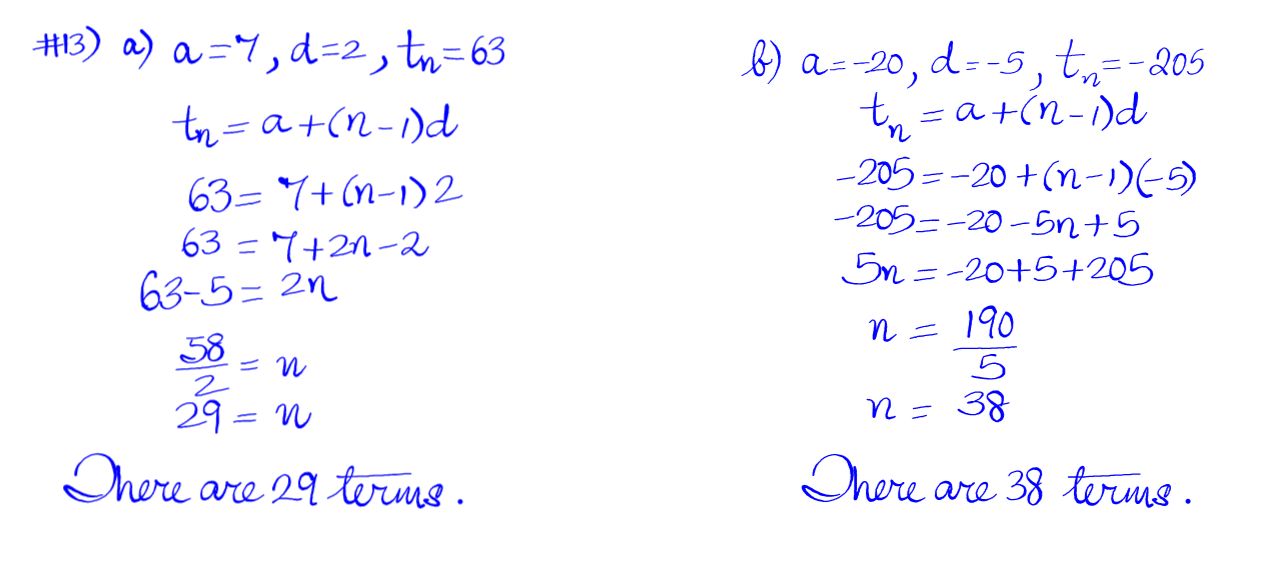 #13) a) a=7, d=2, tn=63
tn = a+(n-1)d
63 = 7+(n-1)2
63 = 7+2n-2
63-5 = 2n
58/2 = n
29 = n
There are 29 terms.
b) a=-20, d=-5, tn=-205
tn = a+(n-1)d
-205 = -20+(n-1)(-5)
-205 = -20-5n+5
5n = -20+5+205
n = 190/5
n = 38
There are 38 terms.